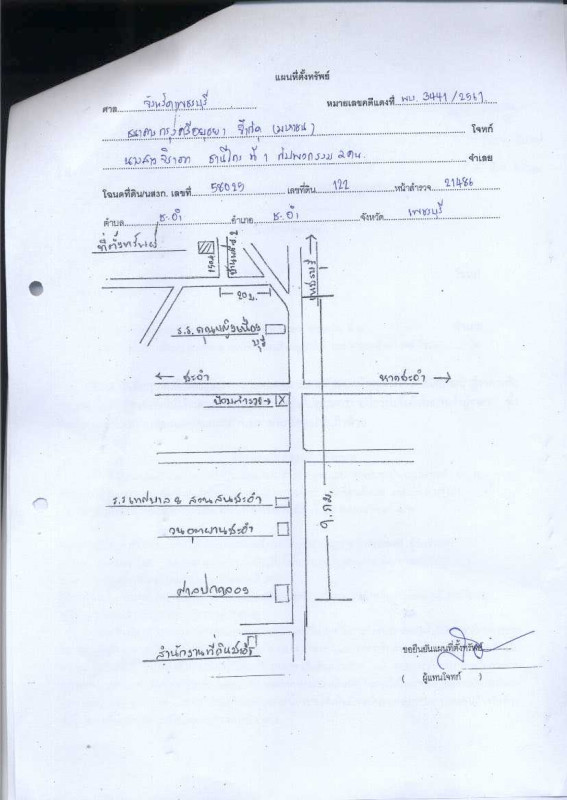 แผนที่ตั้งทรัพย์
ศาล จังหวัดเพชรบุรี หมายเลขคดีแดงที่ ผบ. 3441/2561
ธนาคารกรุงศรีอยุธยา จำกัด (มหาชน) โจทก์
ที่ 1 กับพวกรวม 2 คน จำเลย
โฉนดที่ดิน/นส3ก. เลขที่ 58029 เลขที่ดิน 122 หน้าสำรวจ 21486
ตำบล ชะอำ อำเภอ ชะอำ จังหวัด เพชรบุรี
ที่ตั้งทรัพย์
20ม.
ร.ร. คุณหญิงเนื่อง
บุรี
← ชะอำ
หาดชะอำ →
ป้อมตำรวจ→
ร.ร เทศบาล 8 สวนสนชะอำ
วนอุทยานชะอำ
ก.ม.
ศาลปกครอง
สำนักงานที่ดินชะอำ
ขอยืนยันแผนที่ตั้งทรัพย์
( ผู้แทนโจทก์ )